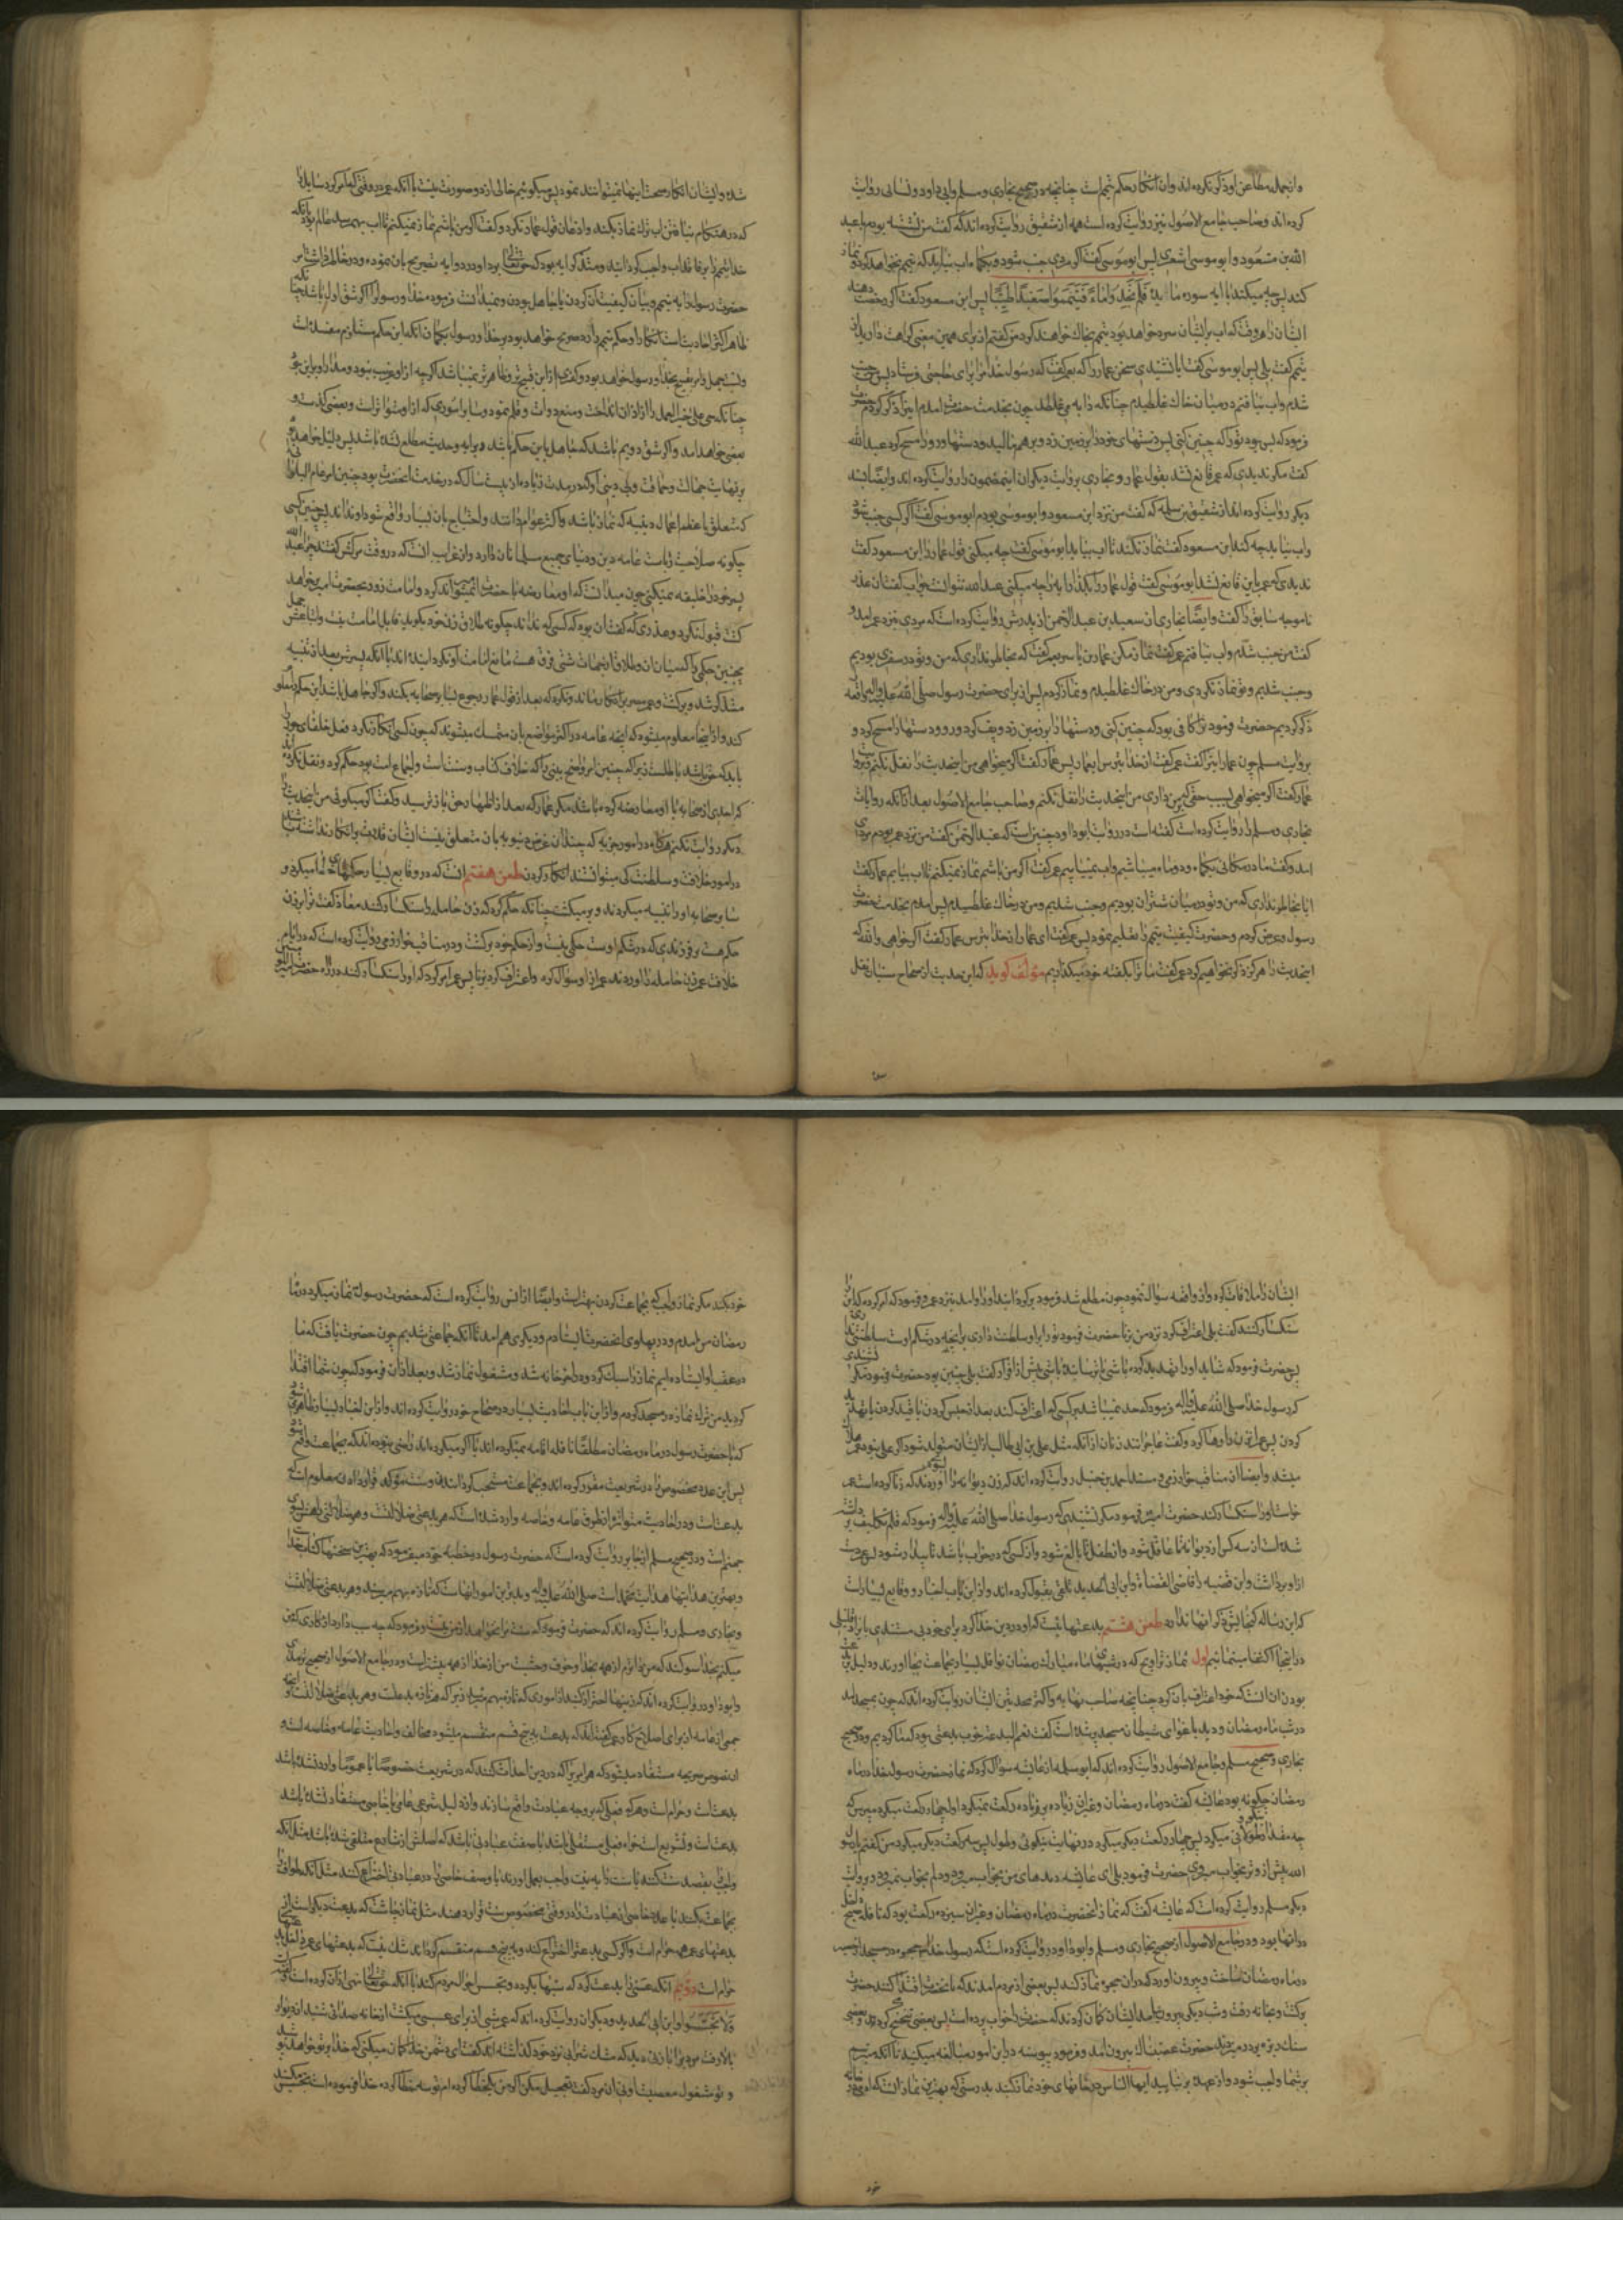 وازجمله مطاعن او ذکر نکرده اند وان انکار حکم تیمم است چنانچه در صحیح بخاری ومسلم وابی داود ونسائی روایت
کرده اند وصاحب جامع الاصول نیز روایت کرده است همه از شقیق روایت کرده اند که گفت من نشسته بودم با عبد
الله بن مسعود وابو موسی اشعری پس ابو موسی گفت اگر مردی جنب شود ویکماه اب نیابد که تیمم نخواهد کرد ونماز
کند پس چه میکنید با ایه سوره مائده فلم تجدوا ماء فتیمموا صعیدا طیبا پس ابن مسعود گفت اگر رخصت دهند
ایشان را هر وقت که اب بر ایشان سرد خواهد بود تیمم بخاک خواهند کرد من گفتم از برای همین معنی کراهت دارید از
تیمم گفت بلی پس ابو موسی گفت ایا نشنیدی سخن عمار را که بعمر گفت که رسول خدا مرا برای حاجتی فرستاد پس جنب
شدم واب نیافتم در میان خاک غلطیدم چنانکه دابه می غلطد چون بخدمت حضرت امدم اینرا ذکر کردم حضرت
فرمود که بس بود تو را که چنین کنی پس دستهای خود را بر زمین زد وبر هم مالید ودستها ورو را مسح کرد عبد الله
گفت مگر ندیدی که عمر قانع نشد بقول عمار وبخاری بروایت دیگر این مضمون را روایت کرده اند وایضا بسند
دیگر روایت کرده اند از شقیق بن سلمه که گفت من نزد ابن مسعود وابو موسی بودم ابو موسی گفت اگر کسی جنب شود
واب نیابد چه کند ابن مسعود گفت نماز نکند تا اب بیابد ابو موسی گفت چه میکنی قول عمار را ابن مسعود گفت
ندیدی که عمر باین قانع نشد ابو موسی گفت قول عمار را بگذار با ایه را چه میکنی عبد الله نتوانست جواب گفت ان عذر
ناموجه سابق را گفت وایضا بخاری از سعید بن عبد الرحمن از پدرش روایت کرده است که مردی نزد عمر امد و
گفت من جنب شدم واب نیافتم عمر گفت نماز مکن عمار بن یاسر بعمر گفت که بخاطر نداری که من وتو در سفری بودیم
وجنب شدیم وتو نماز نکردی ومن در خاک غلطیدم ونماز کردم پس از برای حضرت رسول صلی الله علیه واله واقعه
ذکر کردیم حضرت فرمود ترا کافی بود که چنین کنی ودستها را بر زمین زد وپف کرد ورو ودستها را مسح کرد و
بروایت مسلم چون عمار اینرا گفت عمر گفت از خدا بترس ایعمار پس عمار گفت اگر میخواهی من اینحدیث را نقل نکنم
عمار گفت اگر میخواهی بسبب حقی که بر من داری من اینحدیث را نقل نکنم وصاحب جامع الاصول بعد از آنکه روایات
بخاری ومسلم را روایت کرده است گفته است در روایت ابو داود چنین است که عبد الرحمن گفت من نزد عمر بودم مردی
امد وگفت ما در مکانی یکماه ودو ماه میباشیم واب نمییابیم عمر گفت اگر من باشم نماز نمیکنم تا اب بیابم عمار گفت
ایا بخاطر نداری که من وتو در میان شتران بودیم وجنب شدیم ومن در خاک غلطیدم پس امدم بخدمت حضرت
رسول وعرض کردم وحضرت کیفیت تیمم را تعلیم نمود پس عمر گفت ای عمار از خدا بترس عمار گفت اگر خواهی والله که
اینحدیث را هرگز ذکر نخواهم کرد عمر گفت ما ترا بگفته خود میگذاریم مؤلف گوید که این حدیث از صحاح سنیان نقل
شده وایشان انکار صحت اینها نمیتوانند نمود پس میگوئیم خالی از دو صورت نیست یا آنکه عمر در وقتی که امر کرد سایل را
که در هنگام نیافتن اب ترک نماز بکند واذعان قول عمار نکرد وگفت اگر من باشم نماز نمیکنم تا اب بهم رسد عالم بود بانکه
خدا تیمم را بر فاقد اب واجب گردانیده ومتذکر ایه بود که حق تعالی در دو ایه تصریح بان نموده ودر خاطر داشت امر
حضرت رسول را به تیمم وبیان کیفیت آن کردن یا جاهل بودن ونمیدانست فرموده خدا ورسول را اگر شق اول باشد چنانکه
ظاهر اکثر احادیث است انکار او حکم تیمم را رد صریح خواهد بود بر خدا ورسول بگمان انکه این حکم مستلزم مفسده است
چنانکه حی علی خیر العمل را از اذان انداخت ومنع دوات وقلم نمود وسایر اموری که از او متواتر است وبعضی گذشت و
بعضی خواهد امد واگر شق دویم باشد که جاهل باین حکم باشد وبایه وحدیث مطلع نشده باشد پس دلیل خواهد بود
بر نهایت جهالت وحماقت وبی دینی او که در مدت زیاده از بیست سال که در خدمت انحضرت بود چنین امر عام البلوی
که متعلق باعظم اعمال دینیه که نماز باشد واکثر عوام دانند واحتیاج بان بسیار واقع شود او نداند پس چنین کسی
چگونه صلاحیت ریاست عامه دین ودنیای جمیع مسلمانان دارد واز غرایب انست که در وقت مرگش گفتند چرا عبد الله
پسر خود را خلیفه نمیکنی
متذکر شد وبرگشت وعمر مصر بر انکار ماند ونکرد که بعد از قول عمار رجوع بسایر صحابه بکند واگر جاهل باشد این حکم را معلوم
کند واز اینجا معلوم میشود که اینچه عامه در اکثر مواضع بان متمسک میشوند که چون کسی انکار نکرد فعل خلفای جور را
باید که حق باشد باطلست زیرا که چنین امر واضح بینی را که خلاف کتاب وسنت است واجماع است بود حکم کرد ونقل نکرده اند
که احدی از صحابه با او معارضه کرده باشد مگر عمار که بعد از اظهار حق باز ترسید وگفت اگر میگوئی من اینحدیث را
دیگر روایت نکنم هرگاه در امور جزئیه که چندان غرض دنیویه بان متعلق نیست ایشان قادر بر انکار نداشته باشند
در امور خلافت وسلطنت کی میتوانستند انکار کردن طعن هفتم انست که در وقایع بسیار حکمهای خطا میکرد و
سایر صحابه او را تنبیه میکردند وبر میگشت چنانکه حکم کرد که زن حامله را سنگسار کنند معاذ گفت ترا بر زن
حکم هست بر فرزندی که در شکم اوست حکمی نیست واز حکم خود برگشت ودر مناقب خوارزمی روایت کرده است که در ایام
خلافت عمر زن حامله را اوردند عمر از او سؤال کرد واعتراف کرد بزنا پس عمر امر کرد که او را سنگسار کنند در راه حضرت امیر
ایشان را ملاقات کرد واز واقعه سؤال نمود چون مطلع شد فرمود برگردانید او را وامد بنزد عمر وفرمود که امر کرده که این را
سنگسار کنند گفت بلی اعتراف کرد نزد من بزنا حضرت فرمود تو را بر او سلطنت داری بر انچه در شکم اوست سلطنتی نداری
پس حضرت فرمود که شاید او را تهدید کرده باشی یا ترسانیده باشی پیش از اقرار گفت بلی چنین بود حضرت فرمود مگر نشنیدی
که رسول خدا صلی الله علیه واله فرمود که حد نمیباشد بر کسی که اعتراف کند بعد از حبس کردن یا قید کردن یا تهدید
کردن پس عمر ان زن را رها کرد وگفت عاجزاند زنان از آنکه مثل علی بن ابی طالب از ایشان متولد شود اگر علی نبود عمر هلاک
میشد وایضا از مناقب خوارزمی ومسند احمد بن حنبل روایت کرده اند که زن دیوانه را اوردند که زنا کرده است عمر
خواست او را سنگسار کند حضرت امیر فرمود مگر نشنیده ای که رسول خدا صلی الله علیه واله فرمود که قلم تکلیف برداشته
شده است از سه کس از دیوانه تا عاقل شود واز طفل تا بالغ شود واز کسی که در خواب باشد تا بیدار شود پس عمر دست
از او برداشت واین قضیه را قاضی القضاة وابن ابی الحدید تلقی بقبول کرده اند واز این باب اخبار ووقایع بسیار است
که این رساله گنجایش ذکر انها ندارد طعن هشتم بدعتها نیست که او در دین خدا کرد برای خود بی مستندی بایراد قلیلی
در اینجا اکتفا مینمائیم اول نماز تراویح که در شبهای ماه مبارک رمضان نوافل بسیار بجماعت بجا اورند ودلیل بدعت
بودن ان انست که خود اعتراف بان کرد چنانچه صاحب نهایه واکثر محدثین ایشان روایت کرده اند که چون بمسجد امد
در شب ماه رمضان ودید باغوای شیطان مسجد پر شده است گفت نعم البدعه خوب بدعتی بود که ما کردیم ودر صحیح
بخاری وصحیح مسلم وجامع الاصول روایت کرده اند که ابو سلمه از عایشه سؤال کرد که نماز حضرت رسول خدا در ماه
رمضان چگونه بود عایشه گفت در ماه رمضان وغیر ان زیاده بر یازده رکعت نمیکرد اول چهار رکعت میکرد مپرس که
چه مقدار طولانی میکرد پس چهار رکعت دیگر میکرد در نهایت نیکوئی وطول پس سه رکعت دیگر میکرد من گفتم یا رسول
الله پیش از وتر بخواب میروی حضرت فرمود بلی ای عایشه دیدهای من بخواب میرود ودلم بخواب نمیرود وبروایت
دیگر مسلم روایت کرده است که عایشه گفت که نماز انحضرت در ماه رمضان وغیر ان سیزده رکعت بود که نافله صبح داخل
در انها بود ودر جامع الاصول از صحیح بخاری ومسلم وابو داود روایت کرده است که رسول خدا حجره در مسجد از حصیر
در ماه رمضان ساخت وبیرون اورد که در ان حجره نماز کند پس بعضی از مردم امدند که با انحضرت اقتدا کنند حضرت
برگشت وبخانه رفت وشب دیگر بیرون نیامد ایشان گمان کردند که حضرت را خواب برده است پس بعضی تنحنح کردند وبعضی
سنگ ریزه بر در میزدند حضرت غضبناک بیرون امد وفرمود پیوسته در این امور مبالغه میکنید تا انکه میترسم
بر شما واجب شود واز عهده بر نیایید ایها الناس در خانهای خود نماز کنید بدرستی که بهترین نماز انست که ادمی در خانه
خود بکند مگر نماز واجب که بجماعت کردن بهتر است وایضا از انس روایت کرده است که حضرت رسول نماز میکرد در ماه
رمضان من امدم ودر پهلوی انحضرت ایستادم ودیگری هم امد تا انکه جماعتی شدیم چون حضرت یافت که ما
در عقب او ایستاده ایم نماز را سبک کرد وداخل خانه شد ومشغول نماز شد وبعد از ان فرمود که چون شما اقتدا
کردید من ترک نماز در مسجد کردم واز این باب احادیث بسیار در صحاح خود روایت کرده اند واز این اخبار بسیار ظاهر میشود
که یا حضرت رسول در ماه رمضان مطلقا نافله اقامه نمیکرده اند یا اگر میکرده اند راضی نبوده اند که بجماعت واقع شود
پس این عدد مخصوص را در شریعت مقرر کرده اند وبجماعت مستحب گردانیدن وسنت مؤکد قرار دادن معلوم است که
بدعت است ودر احادیث متواتره از طرق عامه وخاصه وارد شده است که هر بدعتی ضلالتست وهر ضلالتی راهش بسوی
جهنم است ودر صحیح مسلم از جابر روایت کرده است که حضرت رسول در خطبه خود میفرمود که بهترین سخنها کتاب خدا
وبهترین هدایتها هدایت محمد است صلی الله علیه واله وبدترین امور انهاست که تازه بهم میرسد وهر بدعتی ضلالتست
وبخاری ومسلم روایت کرده اند که حضرت فرمود که هر که سنت مرا نخواهد از من نیست وفرمود که چه سبب دارد از کاری که من
میکنم بخدا سوگند که من داناترم از همه بخدا وخوف وخشیت من از خدا از همه بیشتر است ودر جامع الاصول از صحیح ترمذی
وابو داود روایت کرده اند که زینهار احتراز کنید از اموری که تازه بهم رسد زیرا که هر تازه بدعت وهر بدعتی ضلالتست و
جمعی از عامه از برای اصلاح کار عمر گفته اند که بدعت به پنج قسم منقسم میشود مخالف احادیث عامه وخاصه است و
از نصوص صریحه مستفاد میشود که هر امریرا که در دین احداث کنند که در شریعت خصوصا یا عموما وارد نشده باشد
بدعت است وحرام است وهر فعلی که بر وجه عبادت واقع سازند واز دلیل شرعی عام یا خاص مستفاد نشده باشد
بدعت است وتشریع است خواه فعل مستقلی باشد یا صفت عبادتی باشد که اصلش از شارع متلقی شده باشد مثل انکه
واجبی را بقصد سنت کنند یا سنت را به نیت واجب بعمل اورند یا وصف خاصی را در عبادتی اختراع کنند مثل انکه طواف را
بجماعت بکنند یا عدد خاصی از عبادت را در وقتی مخصوص سنت قرار دهند مثل نماز چاشت که بدعت دیگر است از
بدعتهای عمر حرام است واگر کسی بدعترا اختراع کند وبه پنج قسم منقسم گرداند شک نیست که بدعتهای عمر داخل بدعتهای
حرام است دویم آنکه عسس را بدعت کرد که شبها بگردد وتجسس احوال مردم کنند با آنکه حقتعالی نهی از ان کرده است وگفته
ولا تجسسوا وابن ابی الحدید ودیگران روایت کرده اند که عمر شبی از برای عسس میگشت از خانه صدائی شنید از دیوار
بالا رفت مردی را با زنی دید که مشک شرابی نزد خود گذاشته اند گفت ای دشمن خدا گمان میکنی که خدا بر تو خواهد پوشید
وتو مشغول معصیت اوئی ان مرد گفت تعجیل مکن اگر من یک خطا کرده ام تو سه خطا کرده خدا فرموده است تجسس مکنید